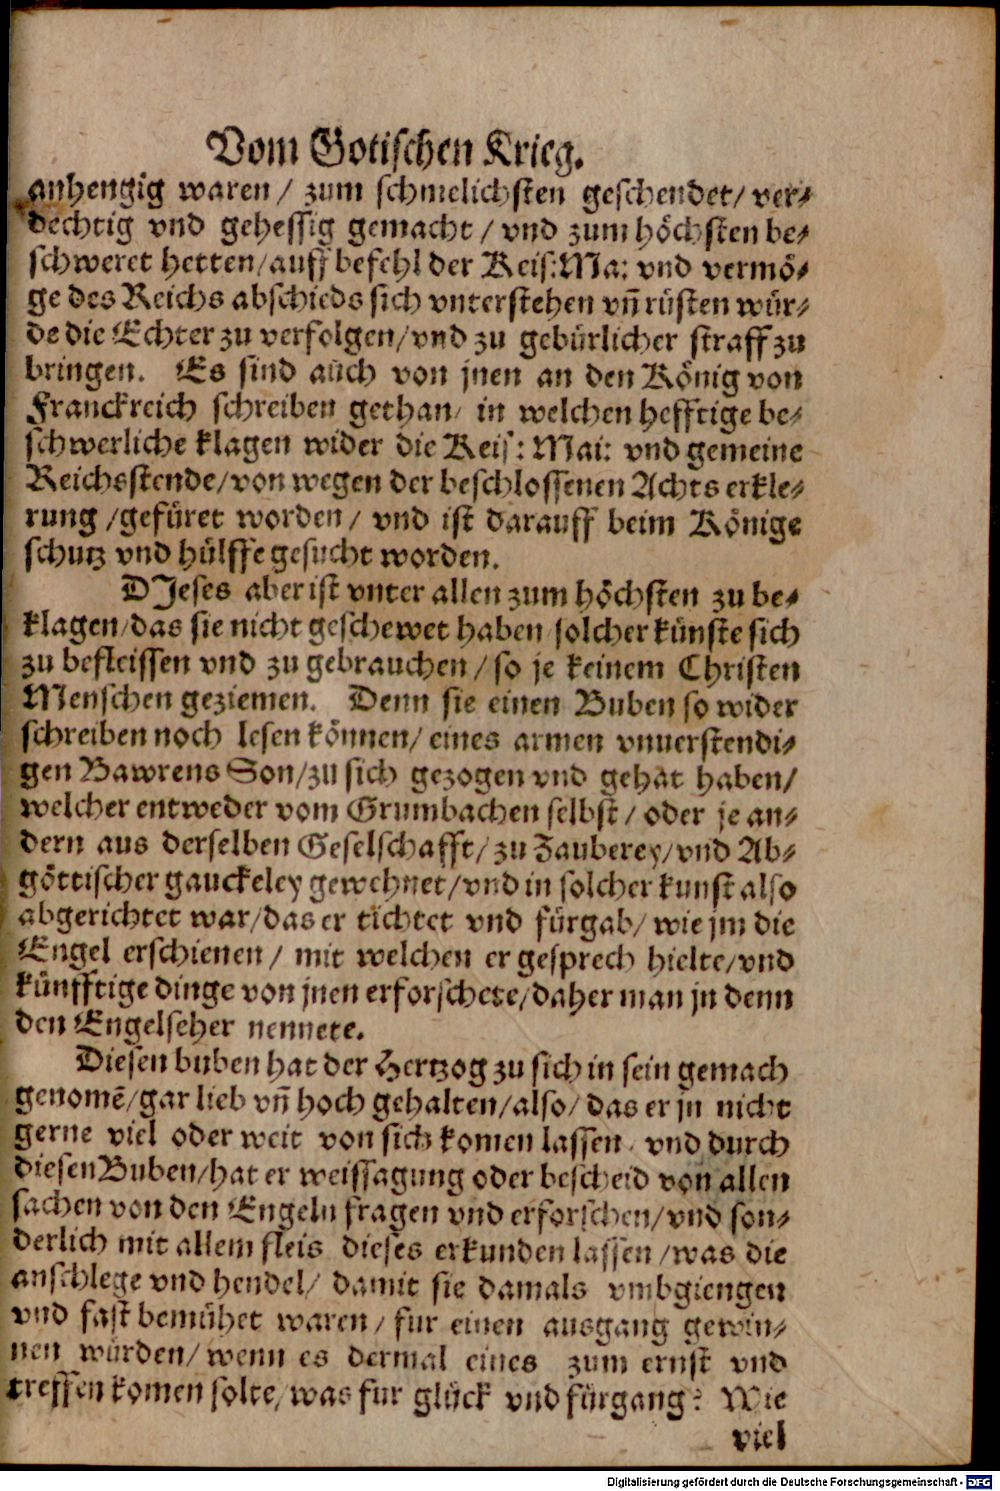 Vom Gotischen Krieg.
anhengig waren / zum schmelichsten geschendet / ver⸗
dechtig vnd gehessig gemacht / vnd zum höchsten be⸗
schweret hetten / auff befehl der Keis: Ma: vnd vermö⸗
ge des Reichs abschieds sich vnterstehen vñ rüsten wür⸗
de die Echter zu verfolgen / vnd zu gebürlicher straff zu
bringen. Es sind auch von jnen an den König von
Franckreich schreiben gethan / in welchen hefftige be⸗
schwerliche klagen wider die Keis: Mai: vnd gemeine
Reichsstende / von wegen der beschlossenen Achts erkle⸗
rung / gefüret worden / vnd ist darauff beim Könige
schutz vnd hülffe gesucht worden.
DJeses aber ist vnter allen zum höchsten zu be⸗
klagen / das sie nicht geschewet haben solcher künste sich
zu befleissen vnd zu gebrauchen / so je keinem Christen
Menschen geziemen. Denn sie einen Buben so wider
schreiben noch lesen können / eines armen vnuerstendi⸗
gen Bawrens Son / zu sich gezogen vnd gehat haben /
welcher entweder vom Grumbachen selbst / oder je an⸗
dern aus derselben Geselschafft / zu Zauberey / vnd Ab⸗
göttischer gauckeley gewehnet / vnd in solcher kunst also
abgerichtet war / das er tichtet vnd fürgab / wie jm die
Engel erschienen / mit welchen er gesprech hielte / vnd
künfftige dinge von jnen erforschete / daher man jn denn
den Engelseher nennete.
Diesen buben hat der Hertzog zu sich in sein gemach
genomē / gar lieb vñ hoch gehalten / also / das er jn nicht
gerne viel oder weit von sich komen lassen / vnd durch
diesen Buben / hat er weissagung oder bescheid von allen
sachen von den Engeln fragen vnd erforschen / vnd son⸗
derlich mit allem fleis dieses erkunden lassen / was die
anschlege vnd hendel / damit sie damals vmbgiengen
vnd fast bemühet waren / fur einen ausgang gewin⸗
nen würden / wenn es dermal eines zum ernst vnd
treffen komen solte / was fur glück vnd fürgang: Wie
viel
Digitalisierung gefördert durch die Deutsche Forschungsgemeinschaft - DFG